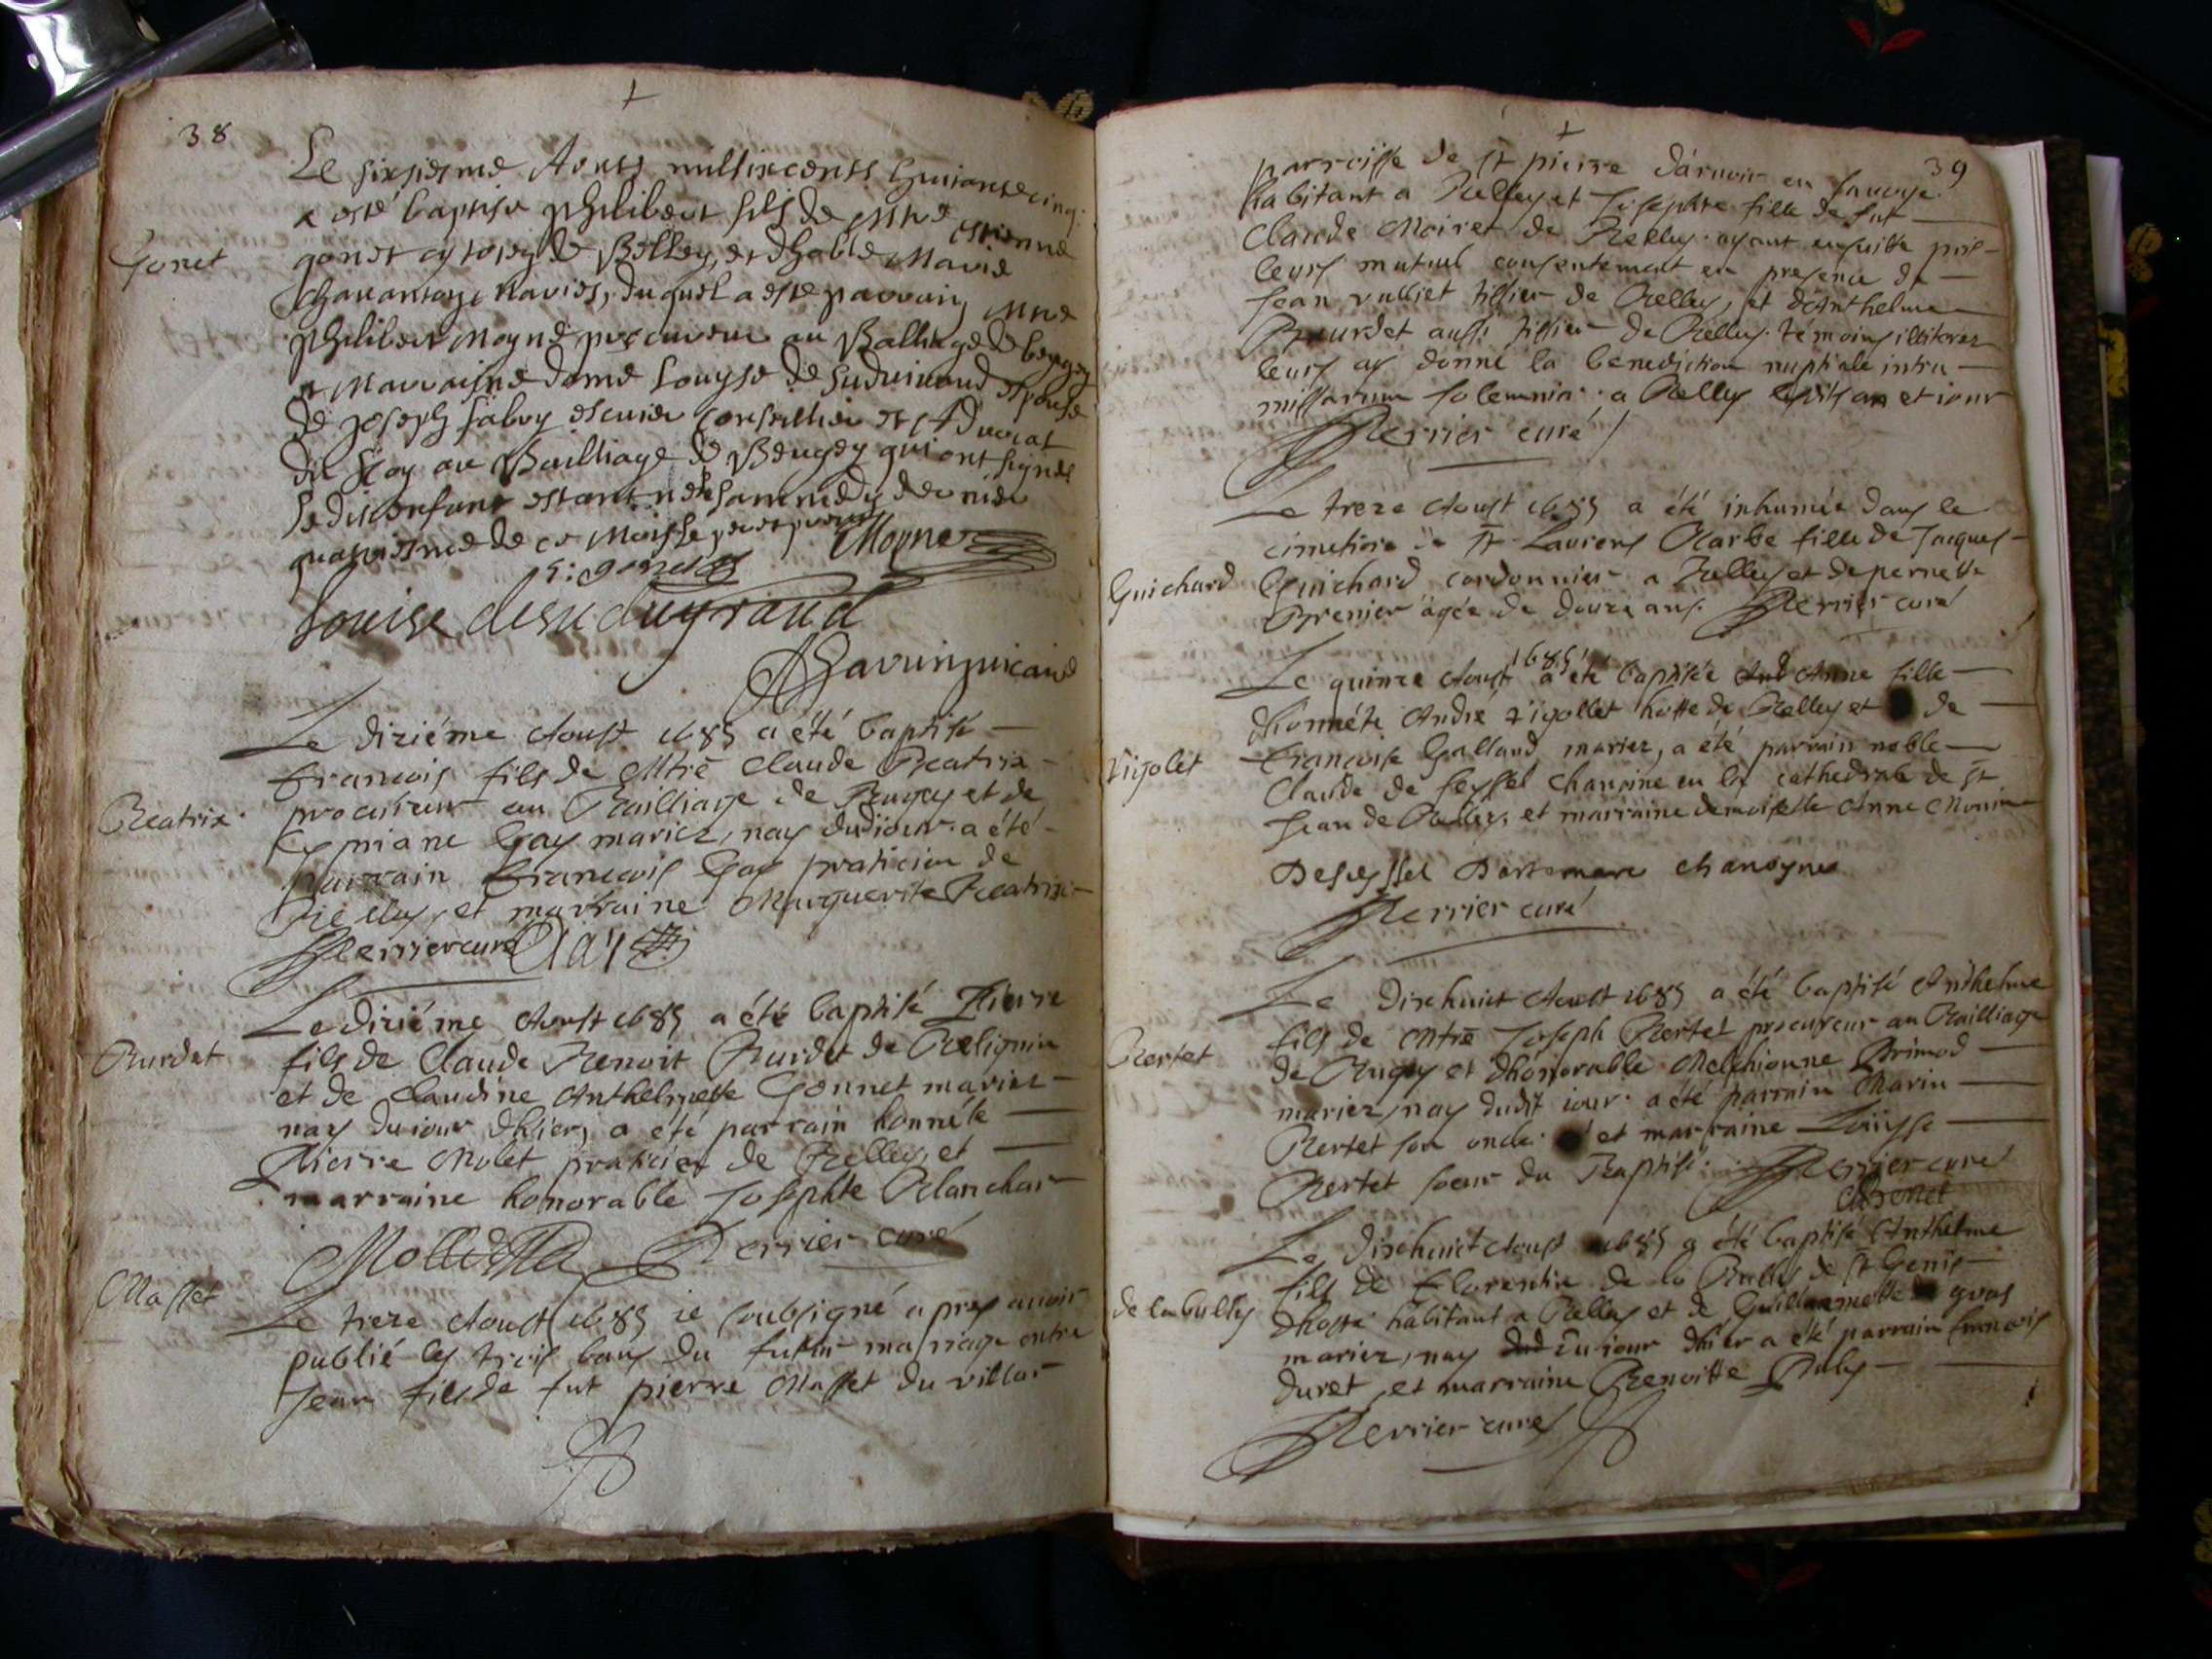 38
Le sixiesme Aoust mil six cents huictante cinq
a esté baptisé philibert fils de Mre Estienne
Gonet
gonet cytoien de Belley, et d'hable Marie
mariés, duquel a esté parrain Mre
philibert Moyne procureur au Balliage de beugey
et Marraisne dame Louyse de Suduiraud espouse
de joseph fabry escuier conseillier et Advocat
du Roy au Bailliage de Beugey qui ont signés
ledit enfant estant né le sammedy dernier
quatriesme de ce Mois
Moyne
E: gonet
Louise desuduyraud
Le diziéme Aoust 1685 a été baptisé
francois fils de Mtre Claude Beatrix
Beatrix
procureur au Bailliage de Bugey et de
Cypriane Gay mariez, nay dudiour. a été
parrain francois Gay praticien de
Belley, et marraine Marguerite Beatrix
Perrier curé Gay
Le diziéme Aoust 1685 a été baptisé Pierre
Burdet
fils de Claude Benoit Burdet de Belignin
et de Claudine Anthelmette Gonnet mariez
nay du iour d'hier, a été parrain honnéte
Pierre Molet praticien de Belley, et
marraine honorable Josephte Blanchar
Perrier curé
Masset
Le treze Aoust 1685 ie soubsigné apres avoir
publié les trois bans du futur mariage entre
Jean fils de fut pierre Masset du villar
39
parroisse de St pierre d'aruoir en Sauoye
habitant a Belley et Josephte fille de fut
Claude Moiret de Belley. ayant ensuitte pris
leurs mutuel consentement en presence de
Jean vulliet tissier de Belley, et d'Anthelme
Bourdet aussi tissier de Belley. témoins illiterez
leurs ay donné la benediction nuptiale intra
missarum solemnia. a Belley lesdits an et iour
Perrier curé
Le treze Aoust 1685 a été inhumée dans le
cimetiere de St Laurens Barbe fille de Jacques
Guichard
Guichard cordonnier a Belley et de pernette
Brenier agée de douze ans. Perrier curé
Le quinze Aoust 1685 a été baptisée Anne fille
d'honnéte André vigollet hoste de Belley et de
Vigolet
francoise Galland mariez, a été parrain noble
Claude de seyssel chanoine en la cathedrale de St
Jean de Belley, et marraine demoiselle Anne Monin
Deseyssel Dartemare chanoyne
Perrier curé
Le dixhuict Aoust 1685 a été baptisé Anthelme
fils de Mtre Joseph Bertet procureur au Bailliage
Bertet
de Bugey et d'honorable Melchionne Brimod
mariez, nay dudit iour. a été parrain Marin
Bertet son oncle. et marraine Loüyse
Bertet soeur du Baptisé. Perrier curé
Bertet
Le dixhuict Aoust 1685 a été baptisé Anthelme
fils de florentin de la Bully de St Genis
de la bully
d'hoste habitant a Belley et de Guillarmette gros
mariez, nay du iour d'hier a été parrain francois
duret, et marraine Benoitte Buly
Perrier curé